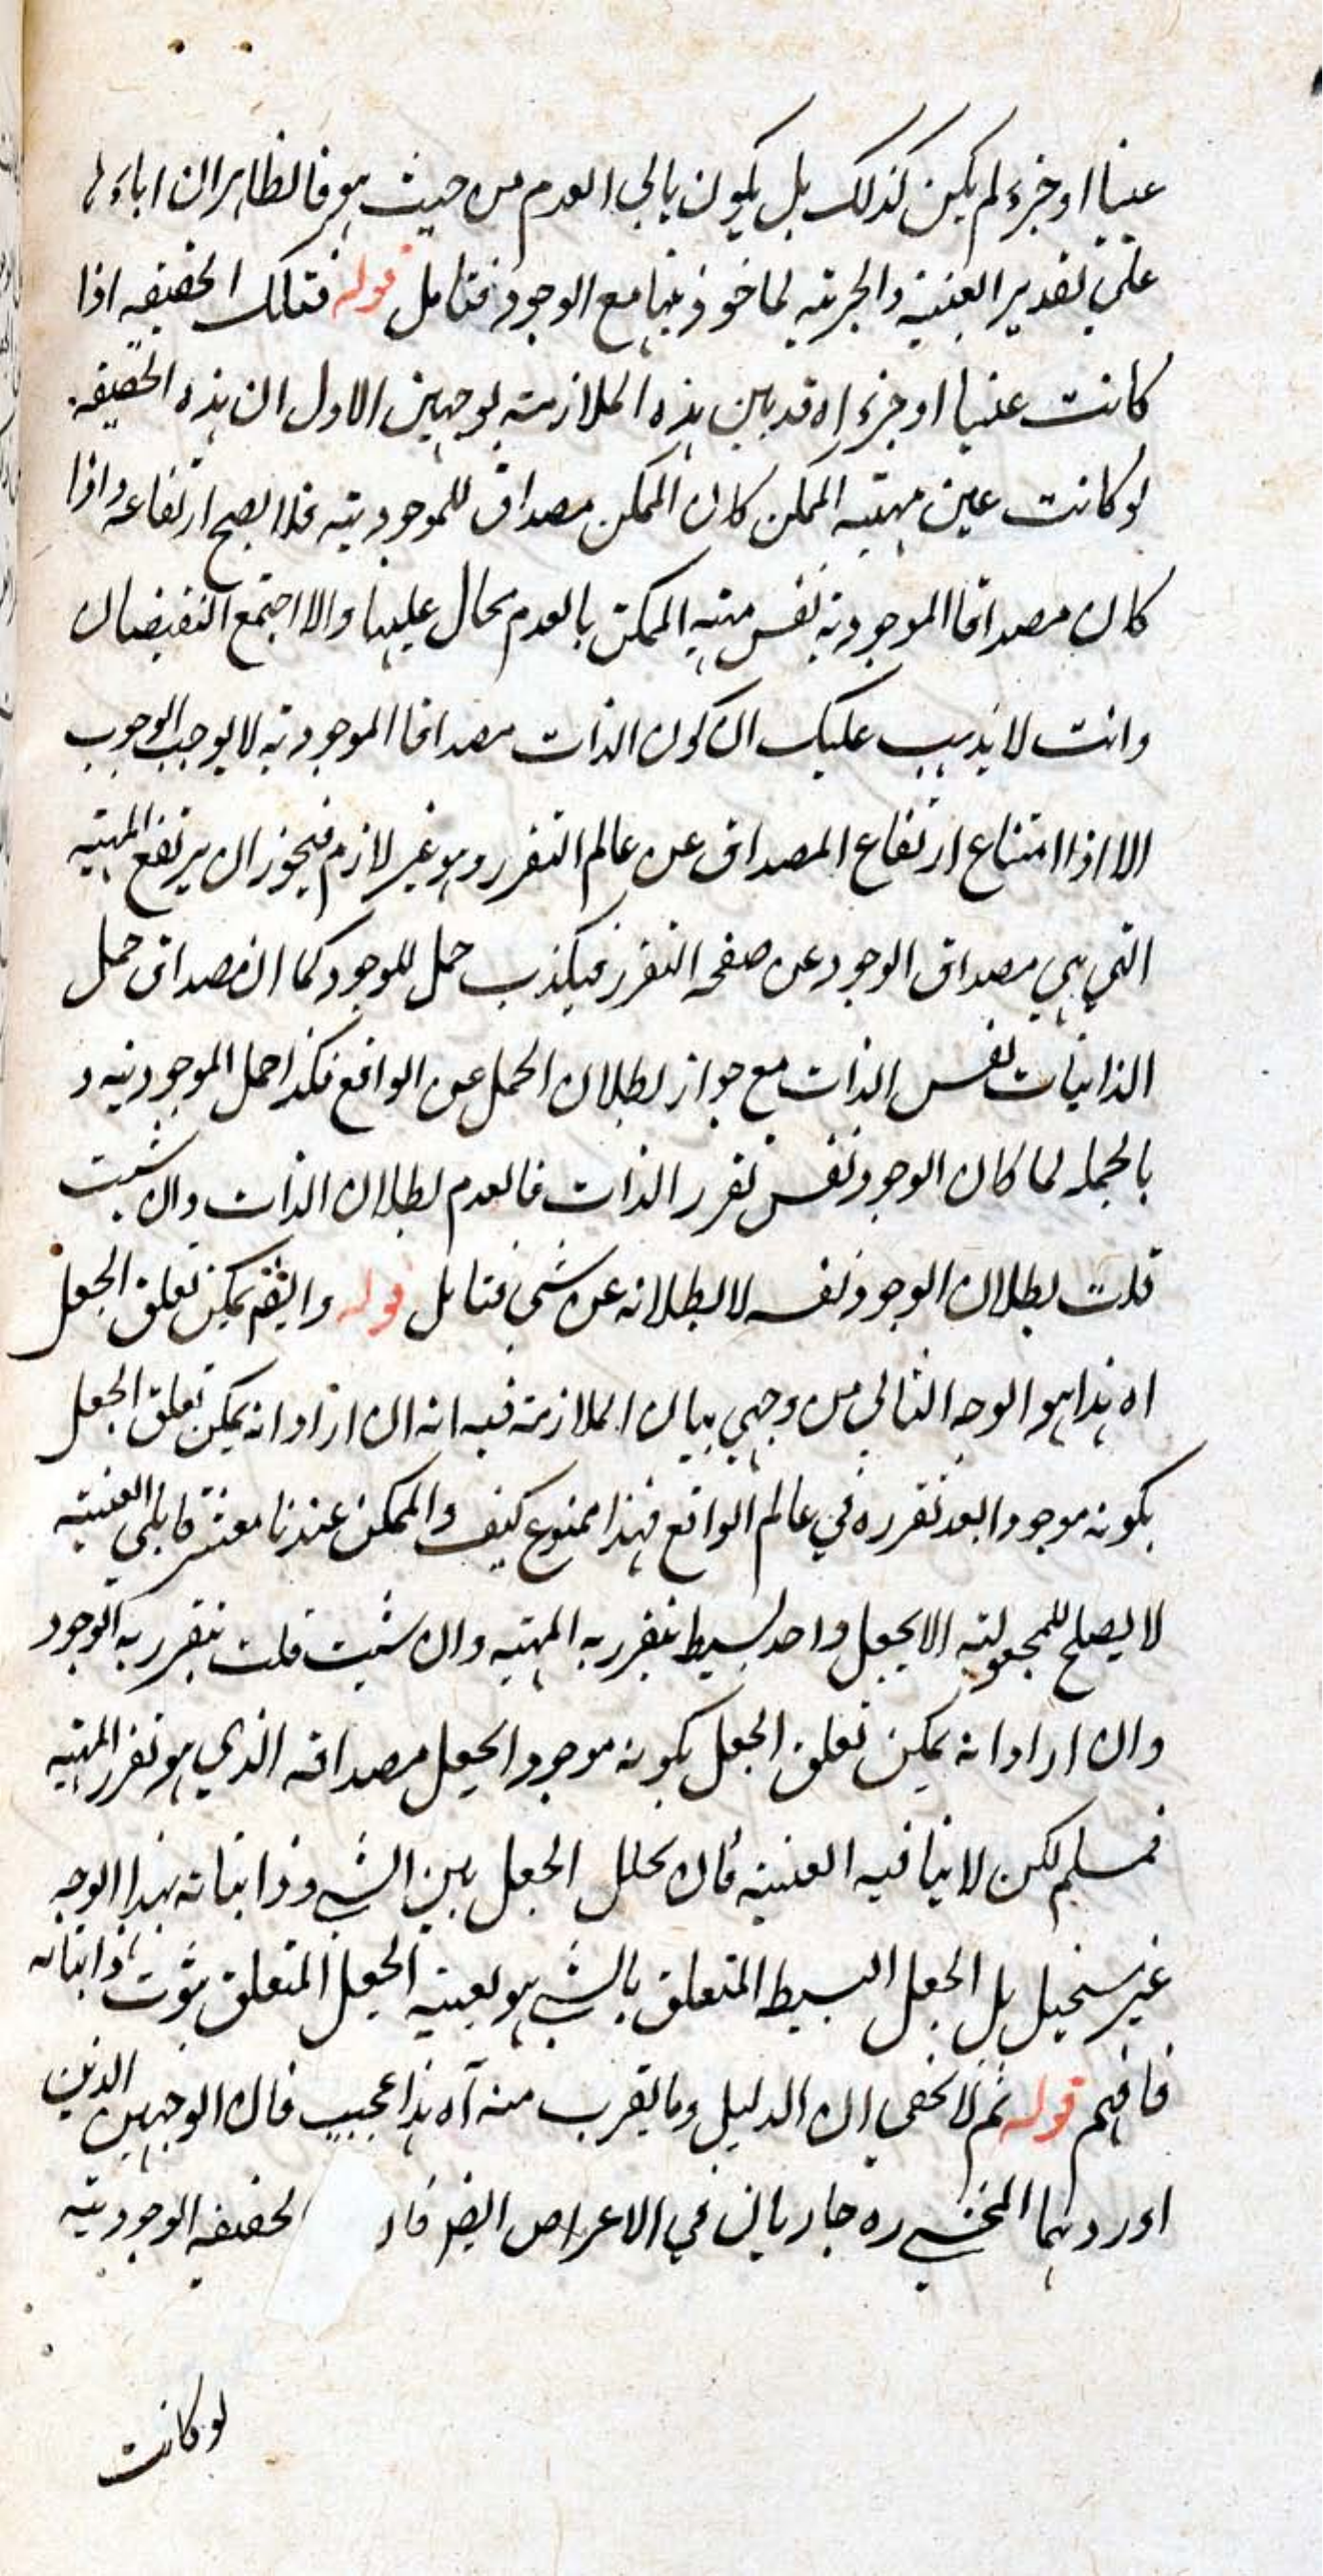 عينا او جزء لم يكن كذلك بل يكون يابى العدم من حيث هو فالظاهر ان اباءها
على تقدير العينية والجزئية لماخوذيتها مع الوجود فتامل قوله فتلك الحقيقه اذا
كانت عينا او جزء اه قد بين هذه الملازمة بوجهين الاول ان هذه الحقيقه
لو كانت عين مهية الممكن كان الممكن مصداق للموجودية فلا يصح ارتفاعه واذا
كان مصداقا الموجودية نفس مهية الممكن بالعدم محال عليها والا اجتمع النقيضان
وانت لا يذهب عليك ان كون الذات مصداقا الموجودية لا يوجب الوجوب
الا اذا امتناع ارتفاع المصداق عن عالم التقرر وهو غير لازم فيجوز ان يرتفع المهية
التي هي مصداق الوجود عن صفحه التقرر فيكذب حمل للوجود كما ان مصداق حمل
الذاتيات نفس الذات مع جواز بطلان الحمل عن الواقع فكذا حمل الموجودية و
بالجمله لما كان الوجود نفس تقرر الذات فالعدم بطلان الذات وان شئت
قلت بطلان الوجود نفسه لا بطلانه عن شي فتامل قوله وايضا يمكن تعلق الجعل
اه هذا هو الوجه الثاني من وجهي بيان الملازمة فيه انه ان اراد انه يمكن تعلق الجعل
بكونه موجودا بعد تقرره في عالم الواقع فهذا ممنوع كيف والممكن عندنا معشر قايلي العينية
لا يصلح للمجعولية الا بجعل واحد بسيط يتقرر به المهية وان شئت قلت يتقرر به الوجود
وان اراد انه يمكن تعلق الجعل بكونه موجودا بجعل مصداقه الذي هو تقرر المهية
فمسلم لكن لا ينافيه العينية فان تخلل الجعل بين الشي وذاتياته بهذا الوجه
غير مستحيل بل الجعل البسيط المتعلق بالشي هو بعينه الجعل المتعلق بثوت ذاتياته
فافهم قوله ثم لا يخفى ان الدليل وما يقرب منه اه هذا عجيب فان الوجهين الذين
اوردهما المحشي ره جاريان في الاعراض ايضا فان لحقيقه الوجودية
لو كانت